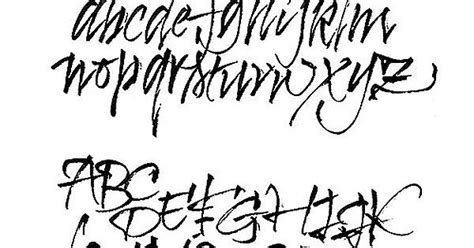 abcdefghijklm
nopqrstuvwxyz
ABC
DEFGHIJK